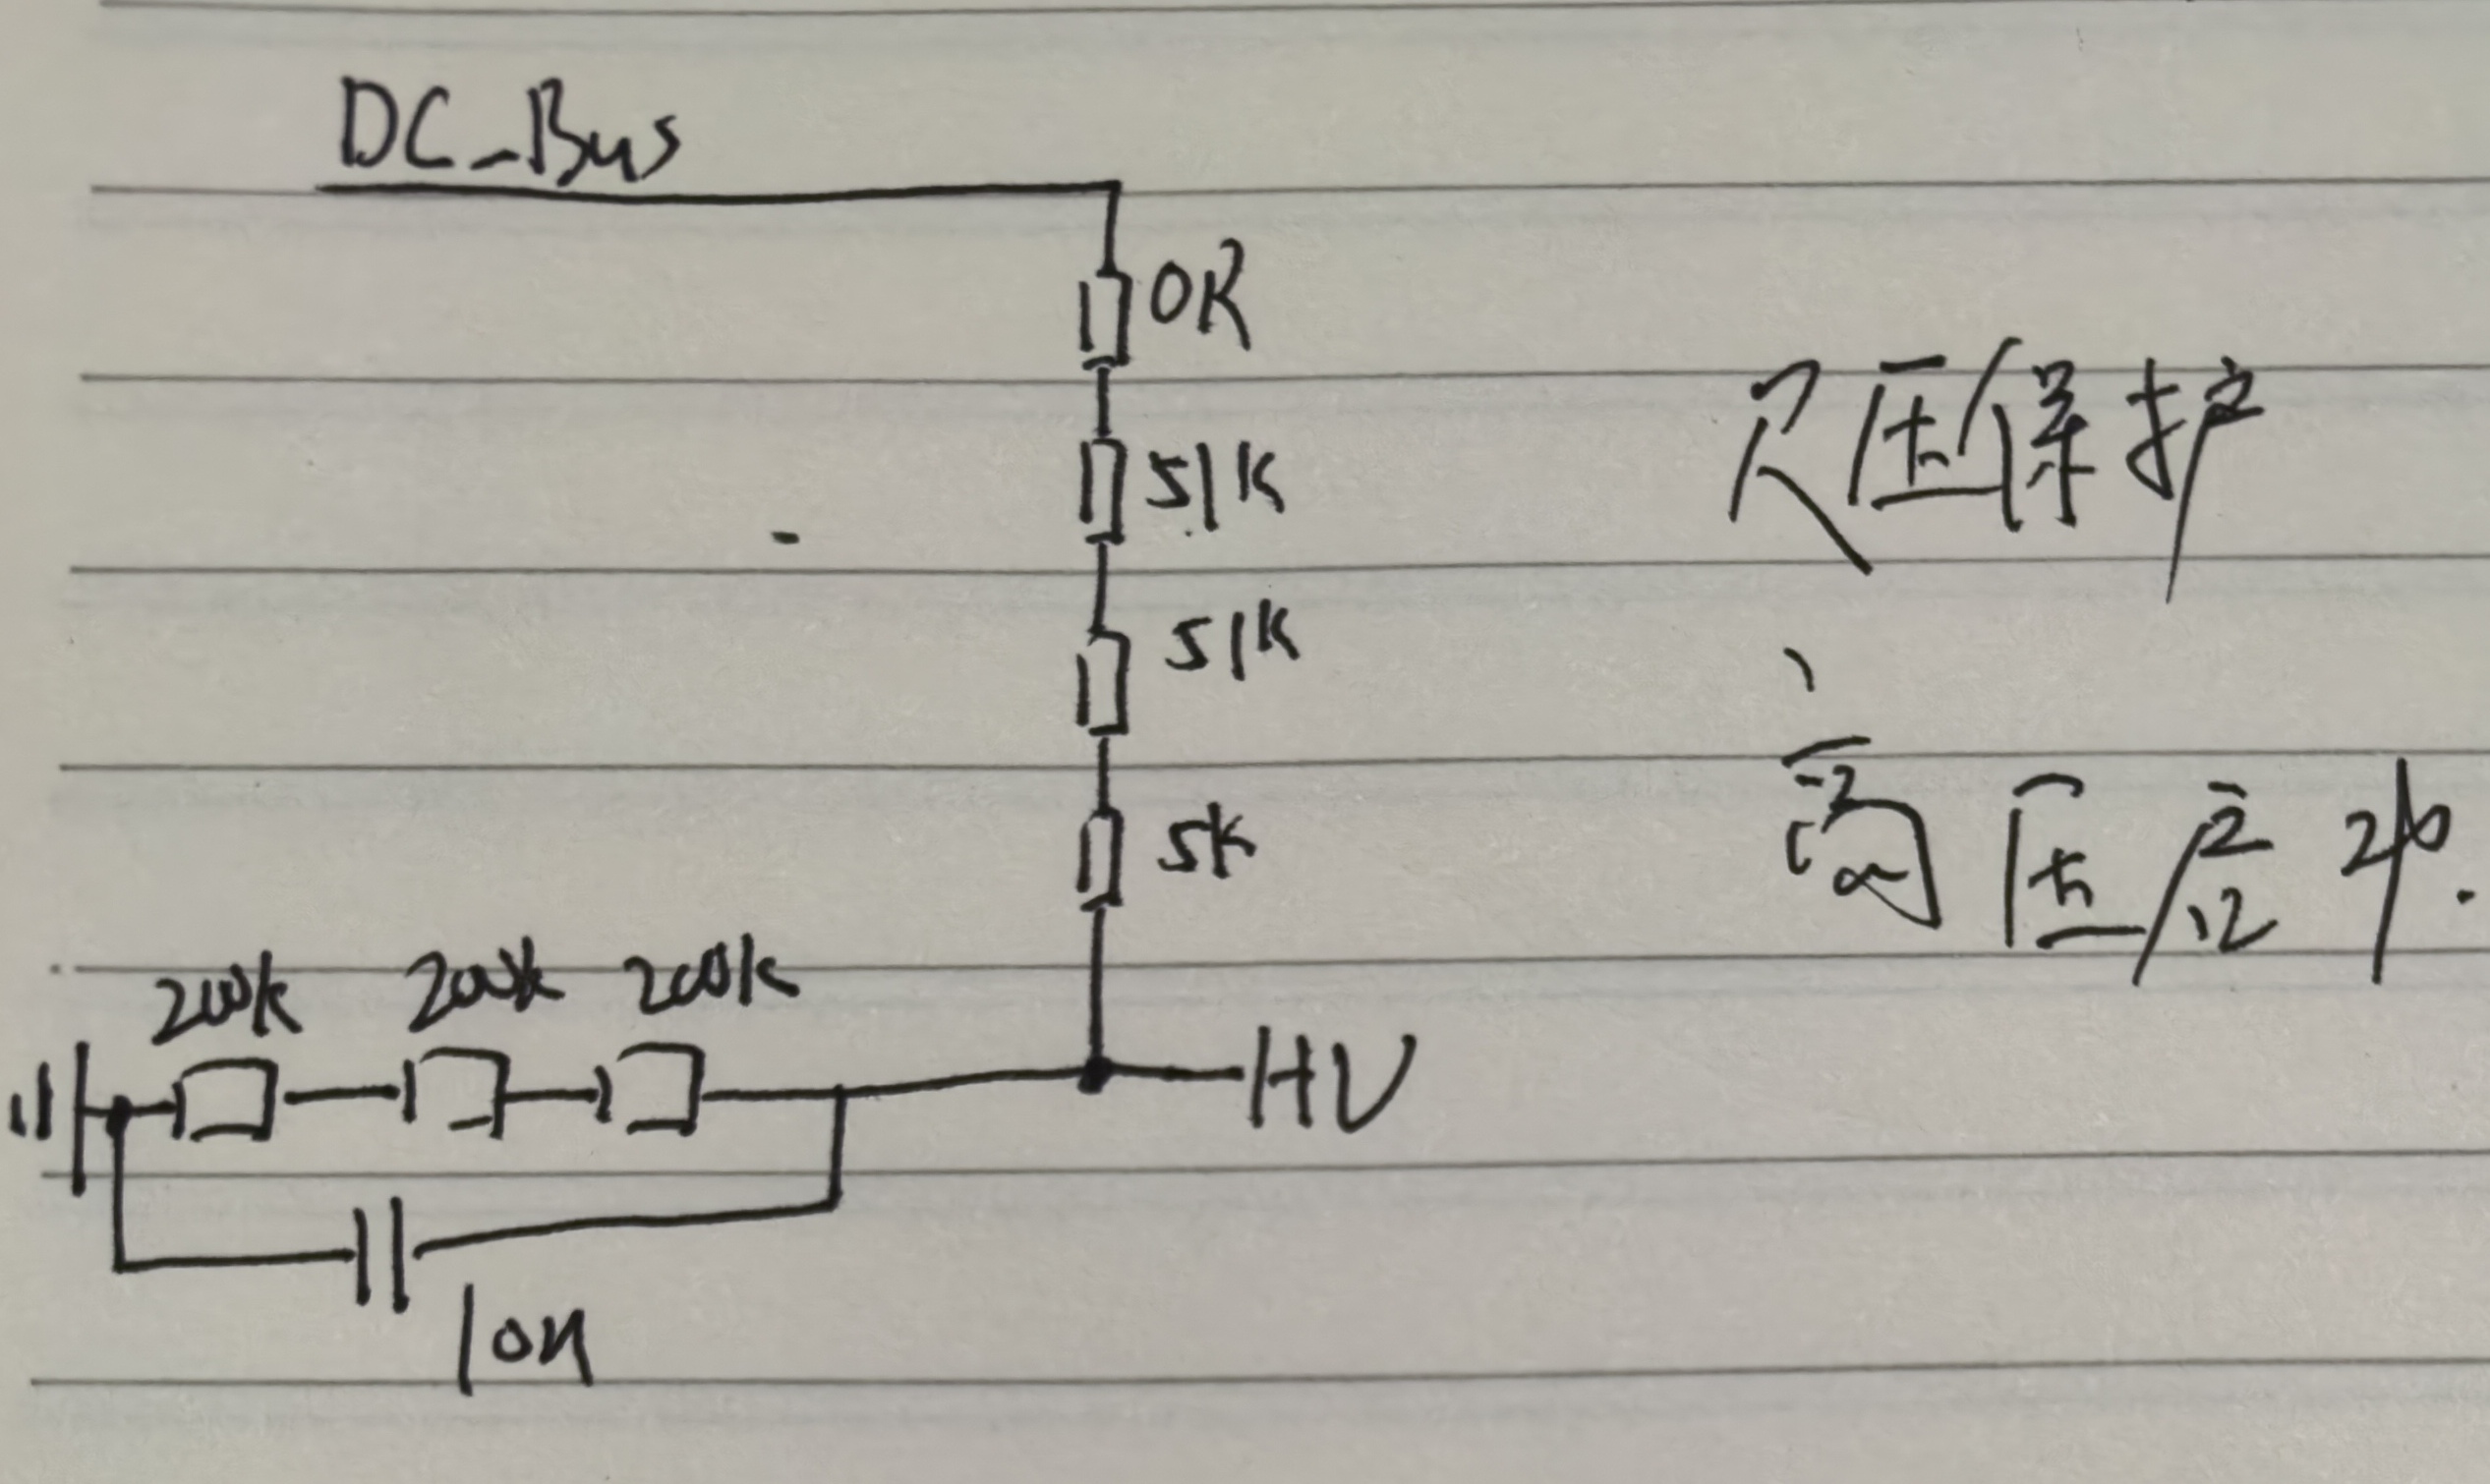 DC_Bus
0R
51K
尺压保护
51K
5K
高压应冲.
200k 200k 200k
HV
10n